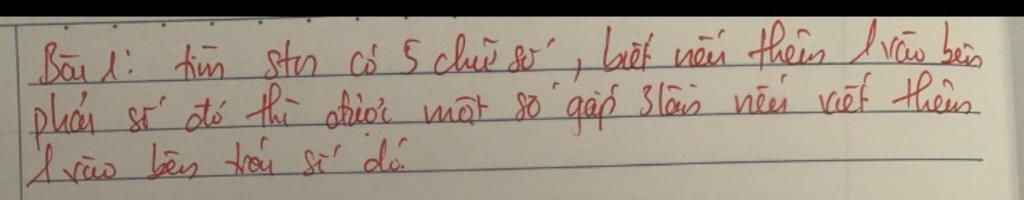 Bài 1: tìm stn có 5 chữ số, biết nếu thêm 1 vào bên
phải số đó thì được một số gấp 3 lần nếu viết thêm
1 vào bên trái số đó.